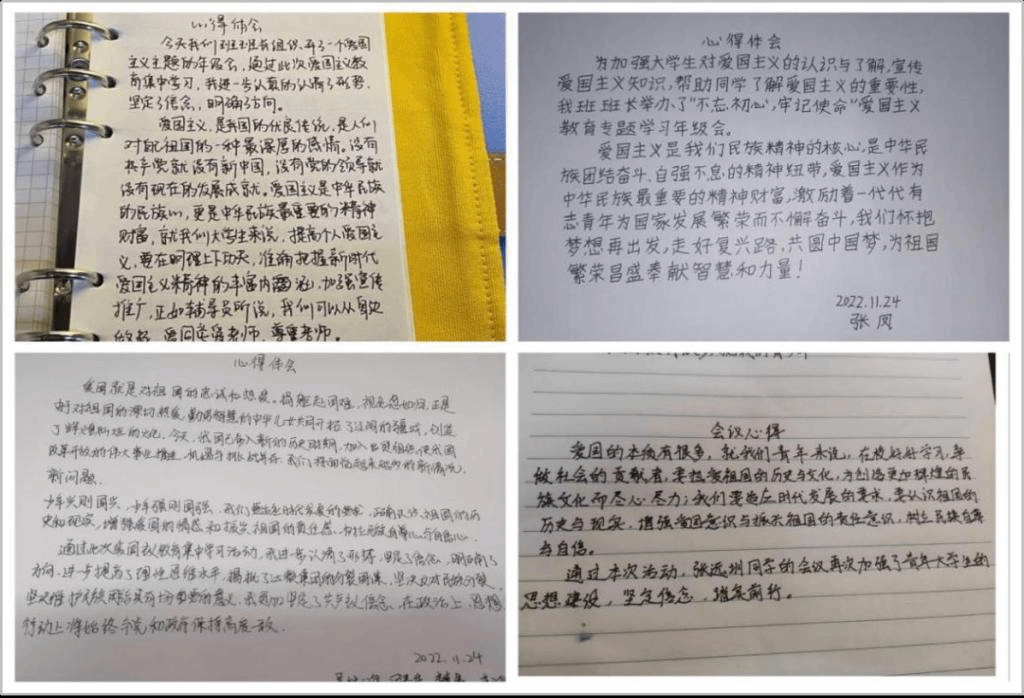 心得体会
今天我们班班长组织,开了一个爱国
主义主题的年级会,通过此次爱国主义教
育集中学习,我进一步认真的认清了形势,
坚定了信念,明确了方向。
爱国主义,是我国的优良传统,是人们
对自己祖国的一种最深厚的感情。没有
共产党就没有新中国,没有党的领导就
没有现在的发展成就。爱国主义是中华民族
的民族心,更是中华民族最重要的精神
财富,就我们大学生来说,提高个人爱国主
义,要在明理上下功夫,准确把握新时代
爱国主义精神的丰富内涵,加强宣传
推广,正如辅导员所说,我们可以从身边
做起,爱同学爱老师,尊重老师。
心得体会
为加强大学生对爱国主义的认识与了解,宣传
爱国主义知识,帮助同学了解爱国主义的重要性,
我班班长举办了“不忘初心,牢记使命”爱国主义
教育专题学习年级会。
爱国主义是我们民族精神的核心,是中华民
族团结奋斗、自强不息的精神纽带,爱国主义作为
中华民族最重要的精神财富,激励着一代代有
志青年为国家发展繁荣而不懈奋斗,我们怀抱
梦想再出发,走好复兴路,共圆中国梦,为祖国
繁荣昌盛奉献智慧和力量!
2022.11.24
张凤
心得体会
爱国就是对祖国的忠诚和热爱。捐躯赴国难,视死忽如归,正是
由于对祖国的深切热爱,勤劳智慧的中华儿女共同开拓了辽阔的疆域,创造
了辉煌灿烂的文化。今天,我国已进入新的历史时期,
改革开放的伟大事业推进,机遇与挑战并存,我们将面临越来越多的新情况、
新问题。
少年兴则国兴,少年强则国强。我们要适应时代发展的要求,正确认识祖国的历
史和现实,增强爱国的情感和振兴祖国的责任感,树立民族自尊心与自信心。
通过此次爱国主义教育集中学习活动,我进一步认清了形势,坚定了信念,明确了
方向,进一步提高了理性思维水平,
坚决维护民族团结具有十分重要的意义,我更加坚定了共产主义信念,在政治上、思想
行动上将始终与党和政府保持高度一致。
2022.11.24
会议心得
爱国的本质有很多,就我们青年来说,在校好好学习,争
做社会的贡献者,要热爱祖国的历史与文化,为创造更加辉煌的民
族文化而尽心尽力;我们要适应时代发展的要求,要认识祖国的
历史与现实,增强爱国意识与振兴祖国的责任意识,树立民族自尊
与自信。
通过本次活动,张远州同学的会议再次加强了青年大学生的
思想建设,坚定信念,踏实前行。